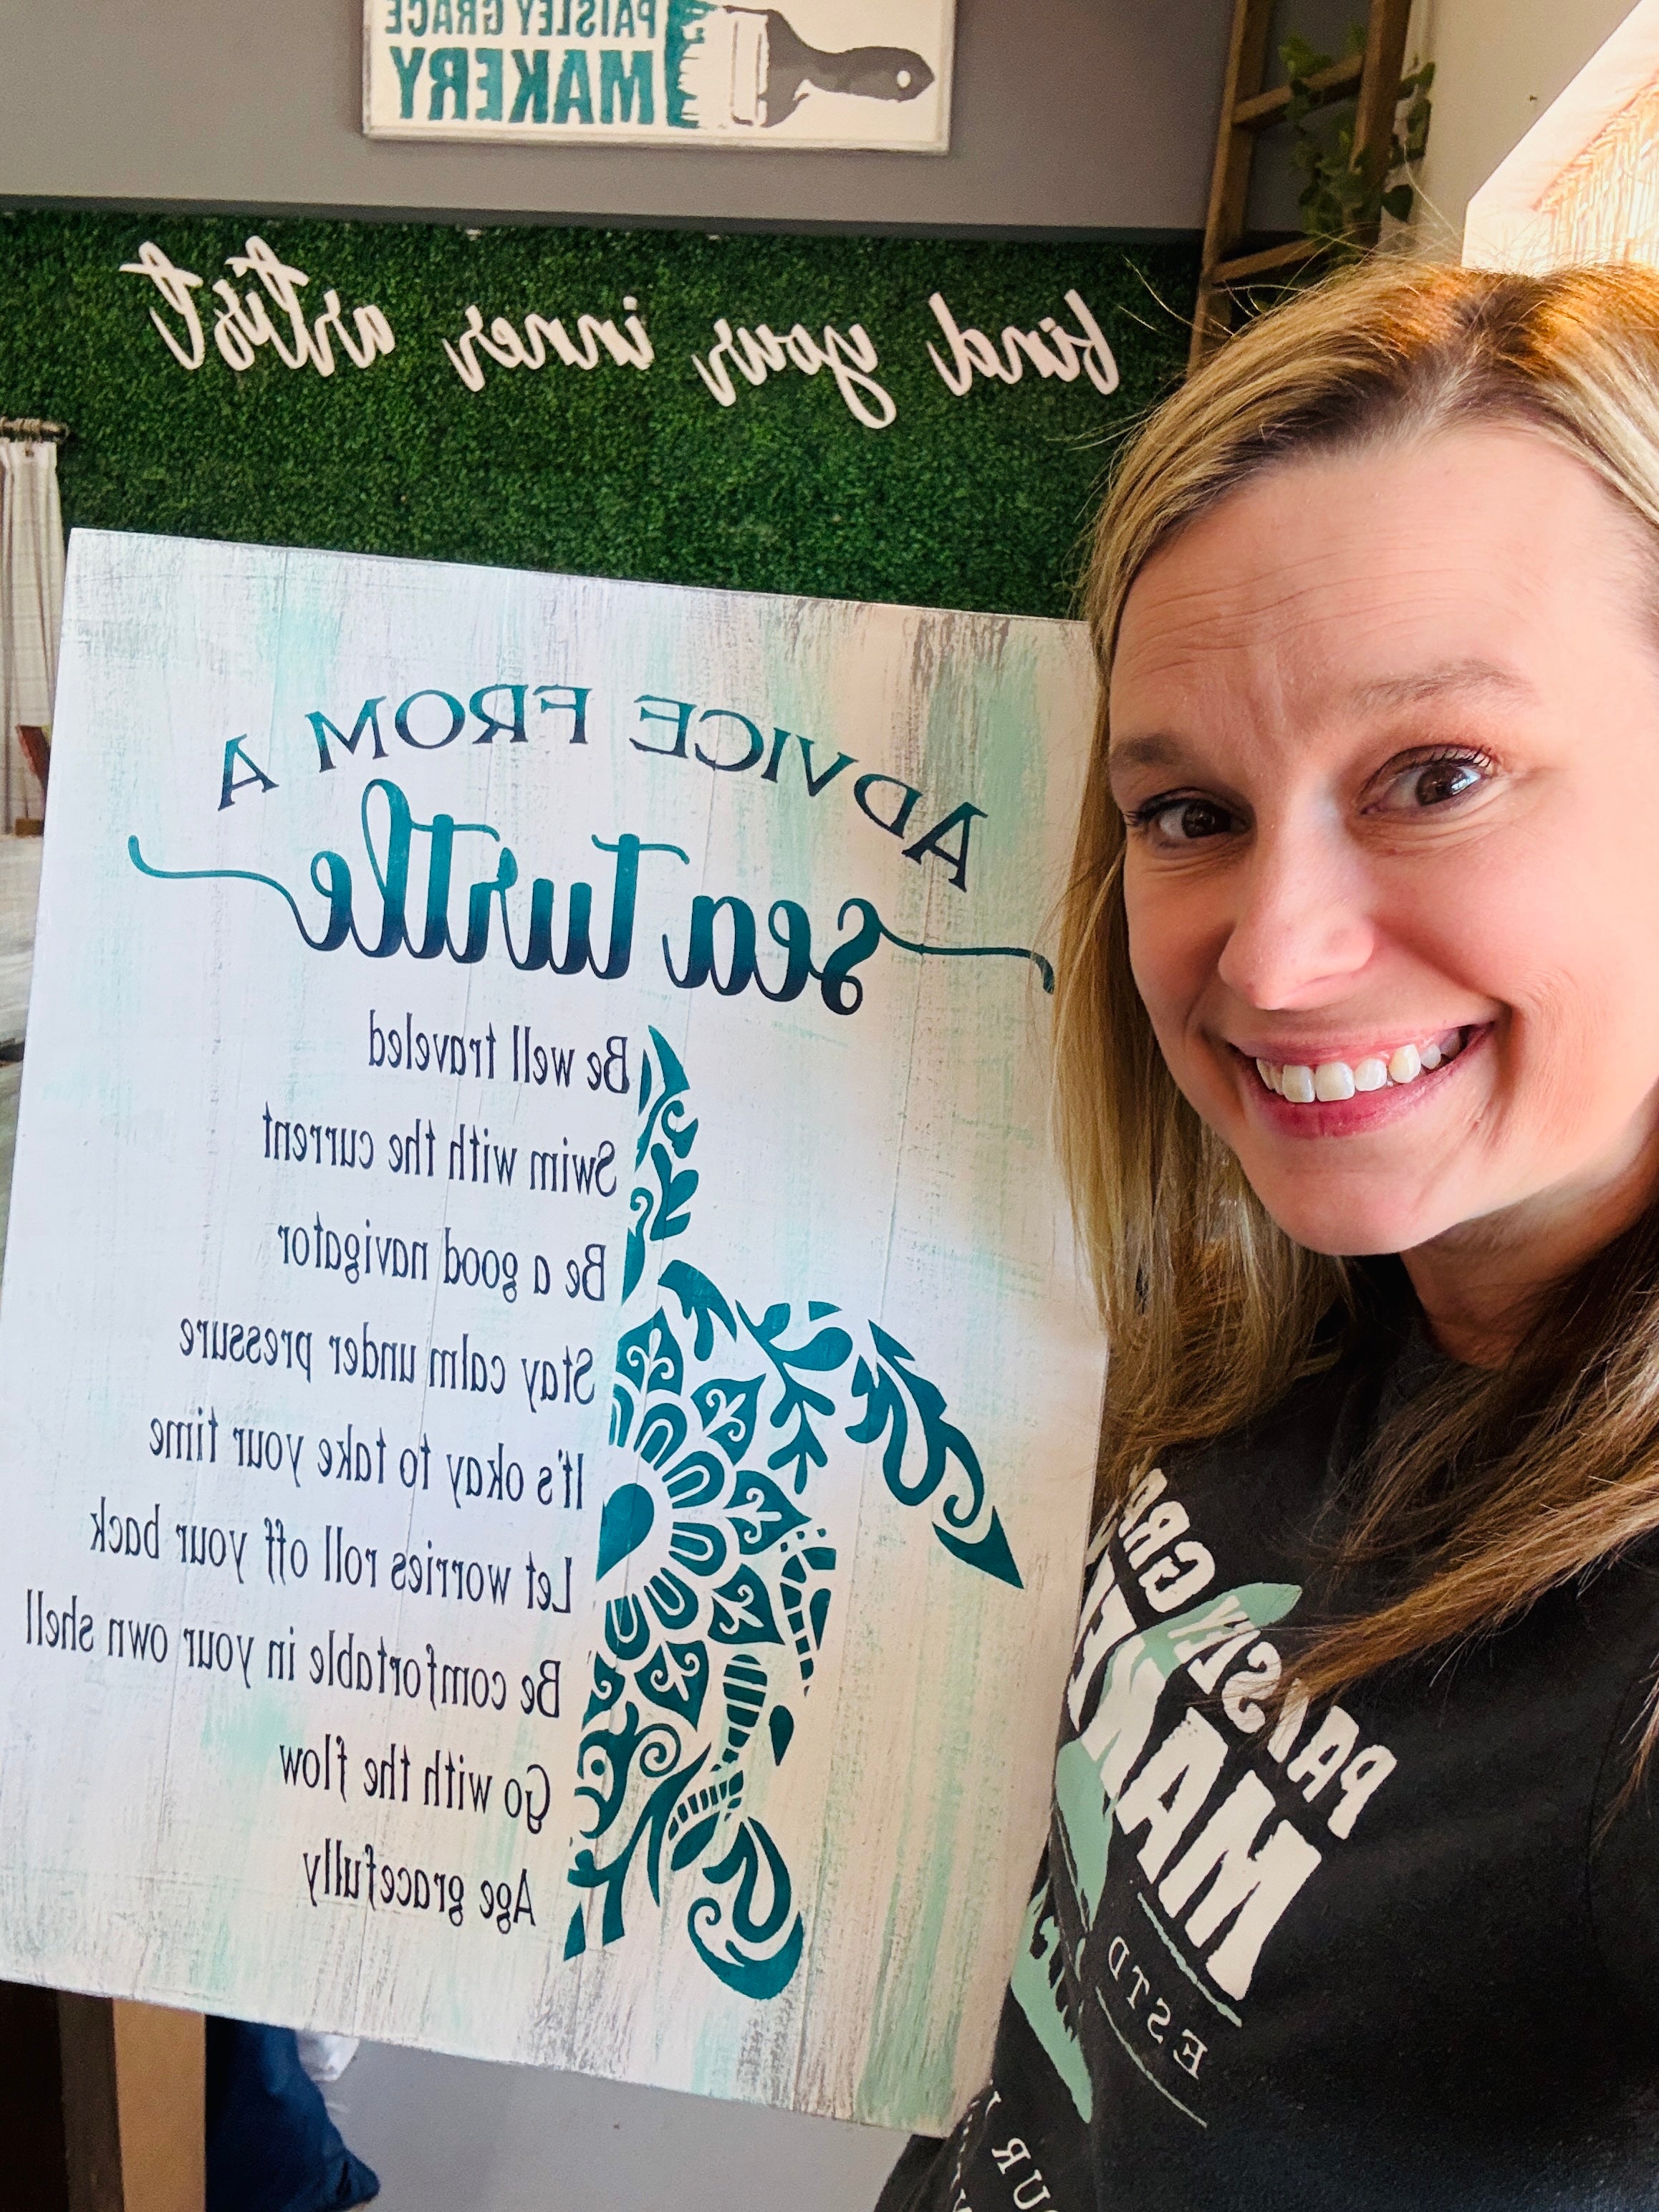 PAISLEY GRACE
MAKERY
find your inner artist
ADVICE FROM A
sea turtle
Be well traveled
Swim with the current
Be a good navigator
Stay calm under pressure
It's okay to take your time
Let worries roll off your back
Be comfortable in your own shell
Go with the flow
Age gracefully
PAISLEY
ESTD